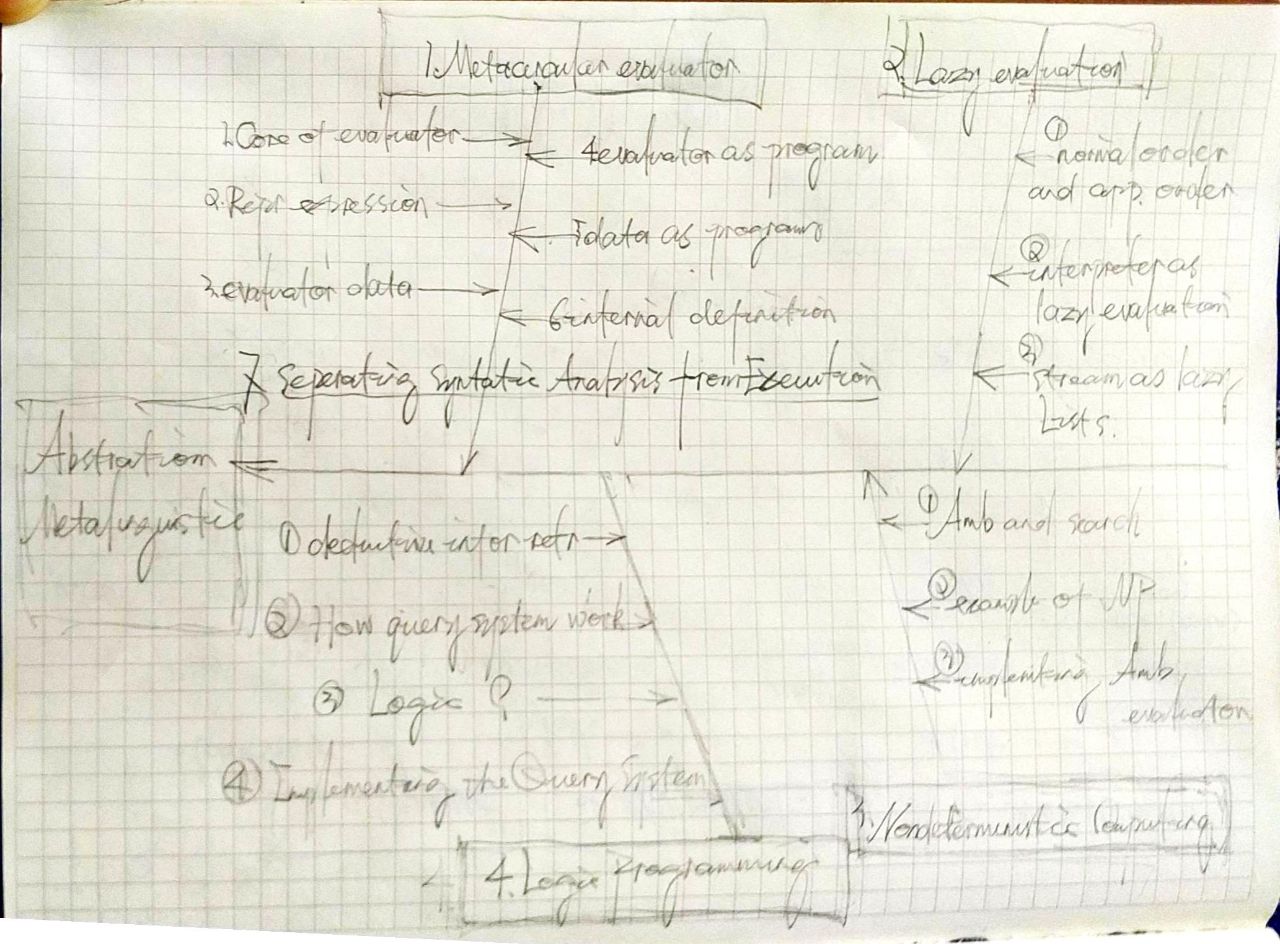 1. Metacircular evaluator
1. Core of evaluator
2. Repr expression
3. evaluator data
4 evaluator as program
5 data as program
6 internal definition
7 Seperating Syntatic Analysis from Execution
2. Lazy evaluation
① normal order
and app. order
② interpreter as
lazy evaluation
③ stream as lazy
Lists.
Abstration
Metalinguistic
① deductive infor retr
② How query system work
③ Logic ?
④ Implementing the Query System
4. Logic Programming
① Amb and search
② example of NP
③ implenting Amb
evaluator
3. Nondeterministic Computing